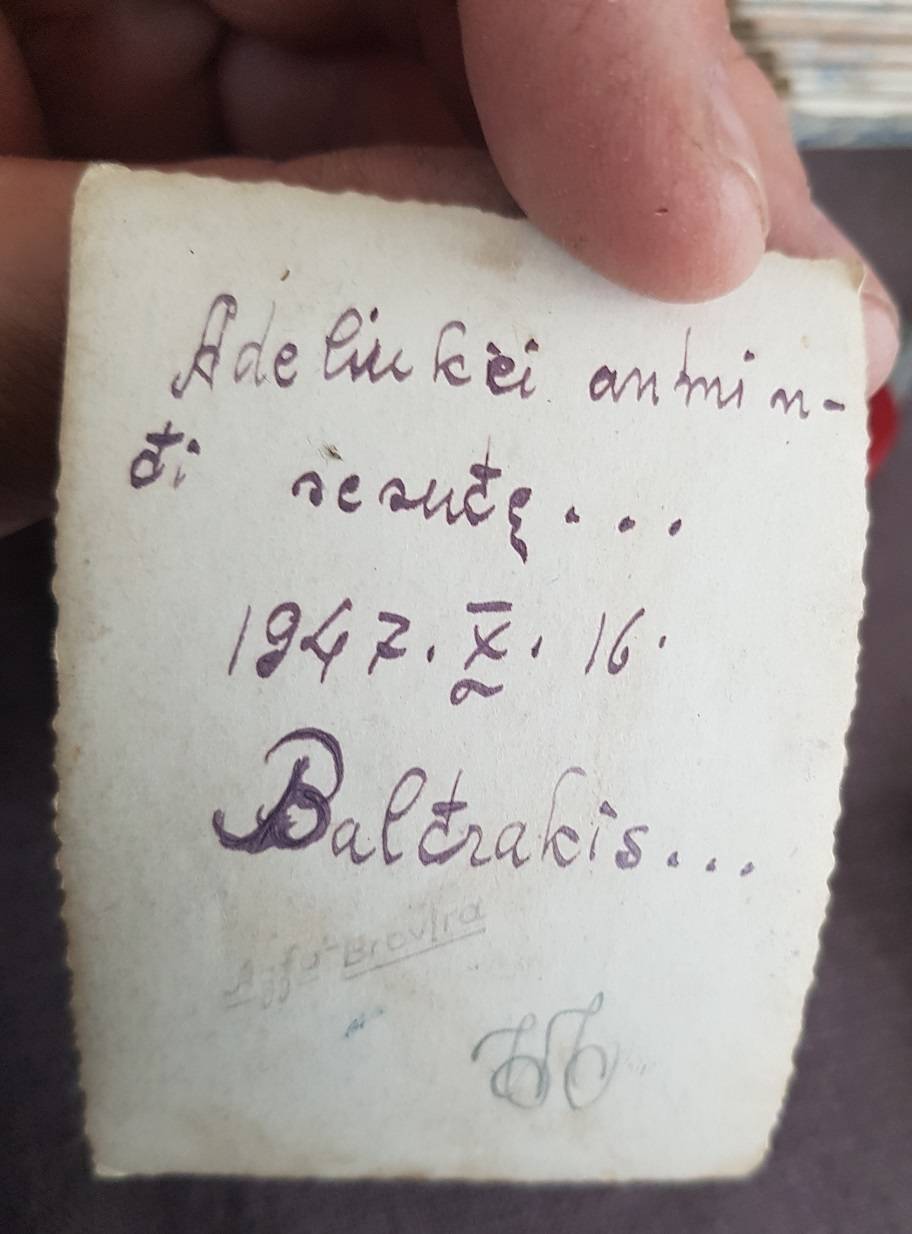 Adeliukėi anmin-
ti sesutę...
1947. X. 16.
Baltrakis...
Agfa-Brovira